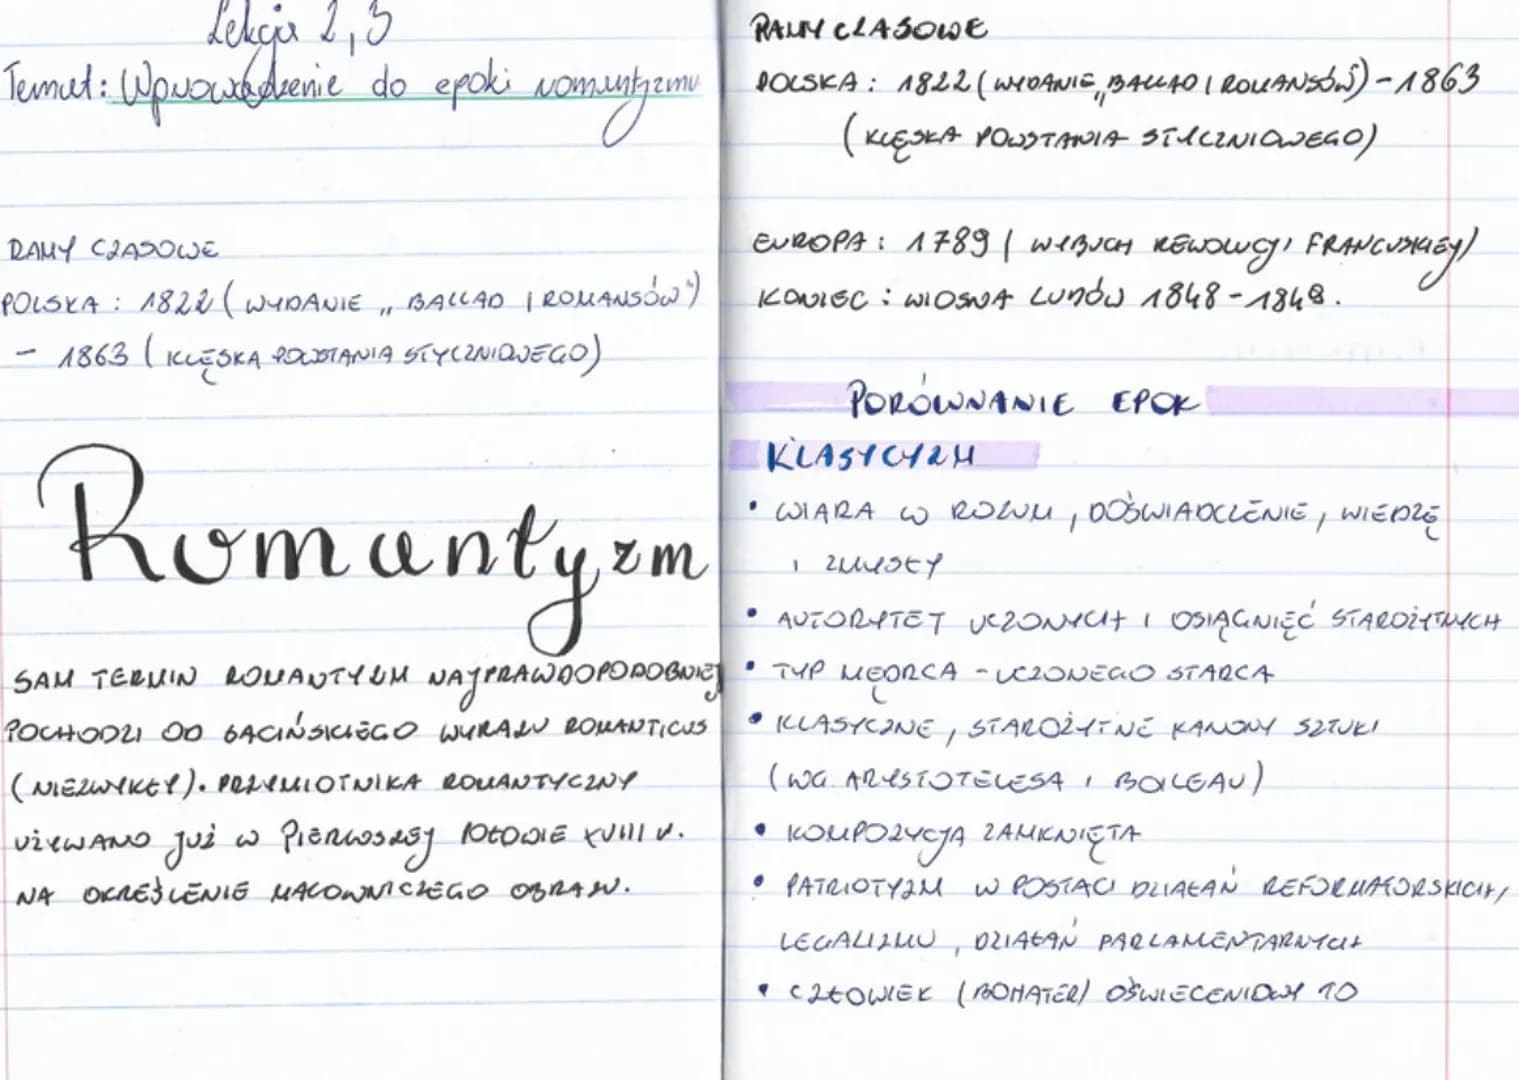 Lekcja 2, 3
Temat: Wprowadzenie do epoki romantyzmu
RAMY CZASOWE
POLSKA: 1822 (WYDANIE „BALLAD I ROMANSÓW")
- 1863 (KLĘSKA POWSTANIA STYCZNIOWEGO)
Romantyzm
SAM TERMIN ROMANTYZM NAJPRAWDOPODOBNIEJ
POCHODZI OD ŁACIŃSKIEGO WYRAZU ROMANTICUS
(NIEZWYKŁY). PRZYMIOTNIKA ROMANTYCZNY
UŻYWANO JUŻ W PIERWSZEJ POŁOWIE XVIII W.
NA OKREŚLENIE MALOWNICZEGO OBRAZU.
RAMY CZASOWE
POLSKA: 1822 (WYDANIE „BALLAD I ROMANSÓW") - 1863
(KLĘSKA POWSTANIA STYCZNIOWEGO)
EUROPA: 1789 (WYBUCH REWOLUCJI FRANCUSKIEJ)
KONIEC: WIOSNA LUDÓW 1848-1849.
PORÓWNANIE EPOK
KLASYCYZM
• WIARA W ROZUM, DOŚWIADCZENIE, WIEDZĘ
I ZMYSŁY
• AUTORYTET UCZONYCH I OSIĄGNIĘĆ STAROŻYTNYCH
• TYP MĘDRCA - UCZONEGO STARCA
• KLASYCZNE, STAROŻYTNE KANONY SZTUKI
(WG. ARYSTOTELESA I BOILEAU)
• KOMPOZYCJA ZAMKNIĘTA
• PATRIOTYZM W POSTACI DZIAŁAŃ REFORMATORSKICH,
LEGALIZMU, DZIAŁAŃ PARLAMENTARNYCH
• CZŁOWIEK (BOHATER) OŚWIECENIOWY TO